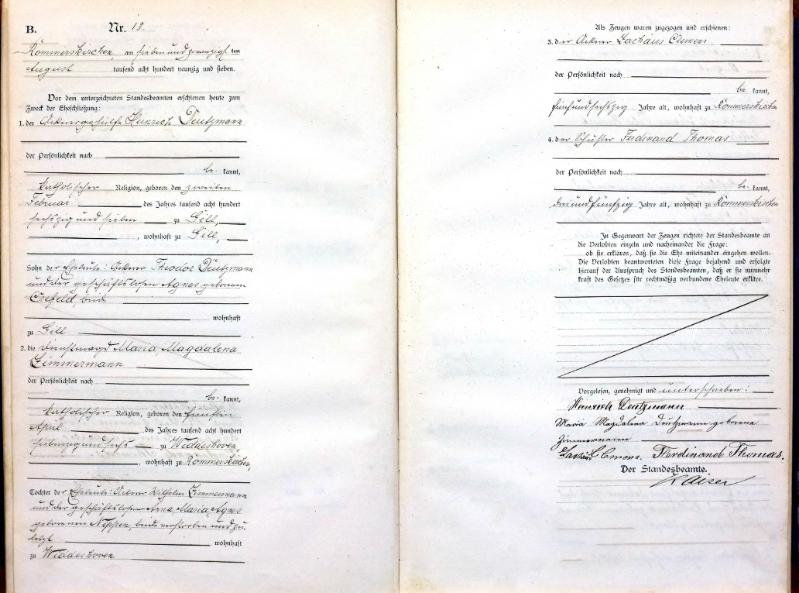 B. Nr. 19.
Rommerskirchen am sieben und zwanzigsten
August tausend acht hundert neunzig und sieben.
Vor dem unterzeichneten Standesbeamten erschienen heute zum
Zweck der Eheschließung:
1. der Ackergehülfe Heinrich Deutzmann
der Persönlichkeit nach
be kannt,
katholischer Religion, geboren den zweiten
Februar des Jahres tausend acht hundert
sechszig und sieben zu Gill,
, wohnhaft zu Gill,
Sohn der Eheleute: Ackerer Theodor Deutzmann
und der geschäftslosen Agnes geborenen
beide
wohnhaft
zu Gill
2. die Dienstmagd Maria Magdalena
Zimmermann
der Persönlichkeit nach
be kannt,
katholischer Religion, geboren den fünften
April des Jahres tausend acht hundert
siebenzig und sechs zu Widdeshoven
, wohnhaft zu Rommerskirchen
Tochter der Eheleute: Ackerer Wilhelm Zimmermann
und der geschäftslosen Anna Maria Agnes
geborenen beide verstorben und zu-
letzt wohnhaft
zu Widdeshoven
Als Zeugen waren zugezogen und erschienen:
3. der Ackerer Zachäus Clemens
der Persönlichkeit nach
be kannt,
fünf und sechszig Jahre alt, wohnhaft zu Rommerskirchen
4. der Schuster Ferdinand Thomas
der Persönlichkeit nach
be kannt,
drei und fünfzig Jahre alt, wohnhaft zu Rommerskirchen
In Gegenwart der Zeugen richtete der Standesbeamte an
die Verlobten einzeln und nacheinander die Frage:
ob sie erklären, daß sie die Ehe miteinander eingehen wollen.
Die Verlobten beantworteten diese Frage bejahend und erfolgte
hierauf der Ausspruch des Standesbeamten, daß er sie nunmehr
kraft des Gesetzes für rechtmäßig verbundene Eheleute erkläre.
Vorgelesen, genehmigt und unterschrieben:
Heinrich Deutzmann
Maria Magdalena Deutzmann geborene
Zimmermann
Ferdinand Thomas.
Der Standesbeamte.
Kaiser